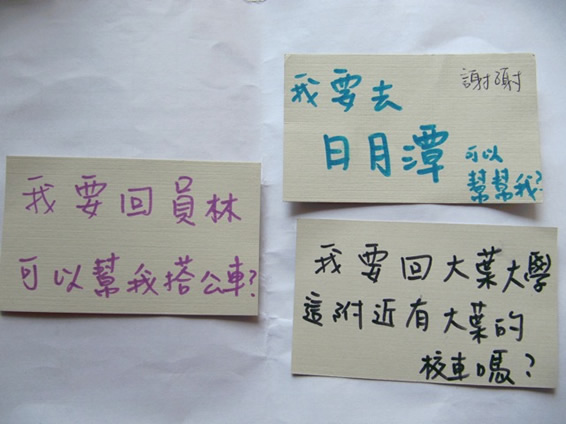 我要回員林
可以幫我搭公車?
謝謝
我要去
日月潭
可以
幫幫我?
我要回大葉大學
這附近有大葉的
校車嗎?